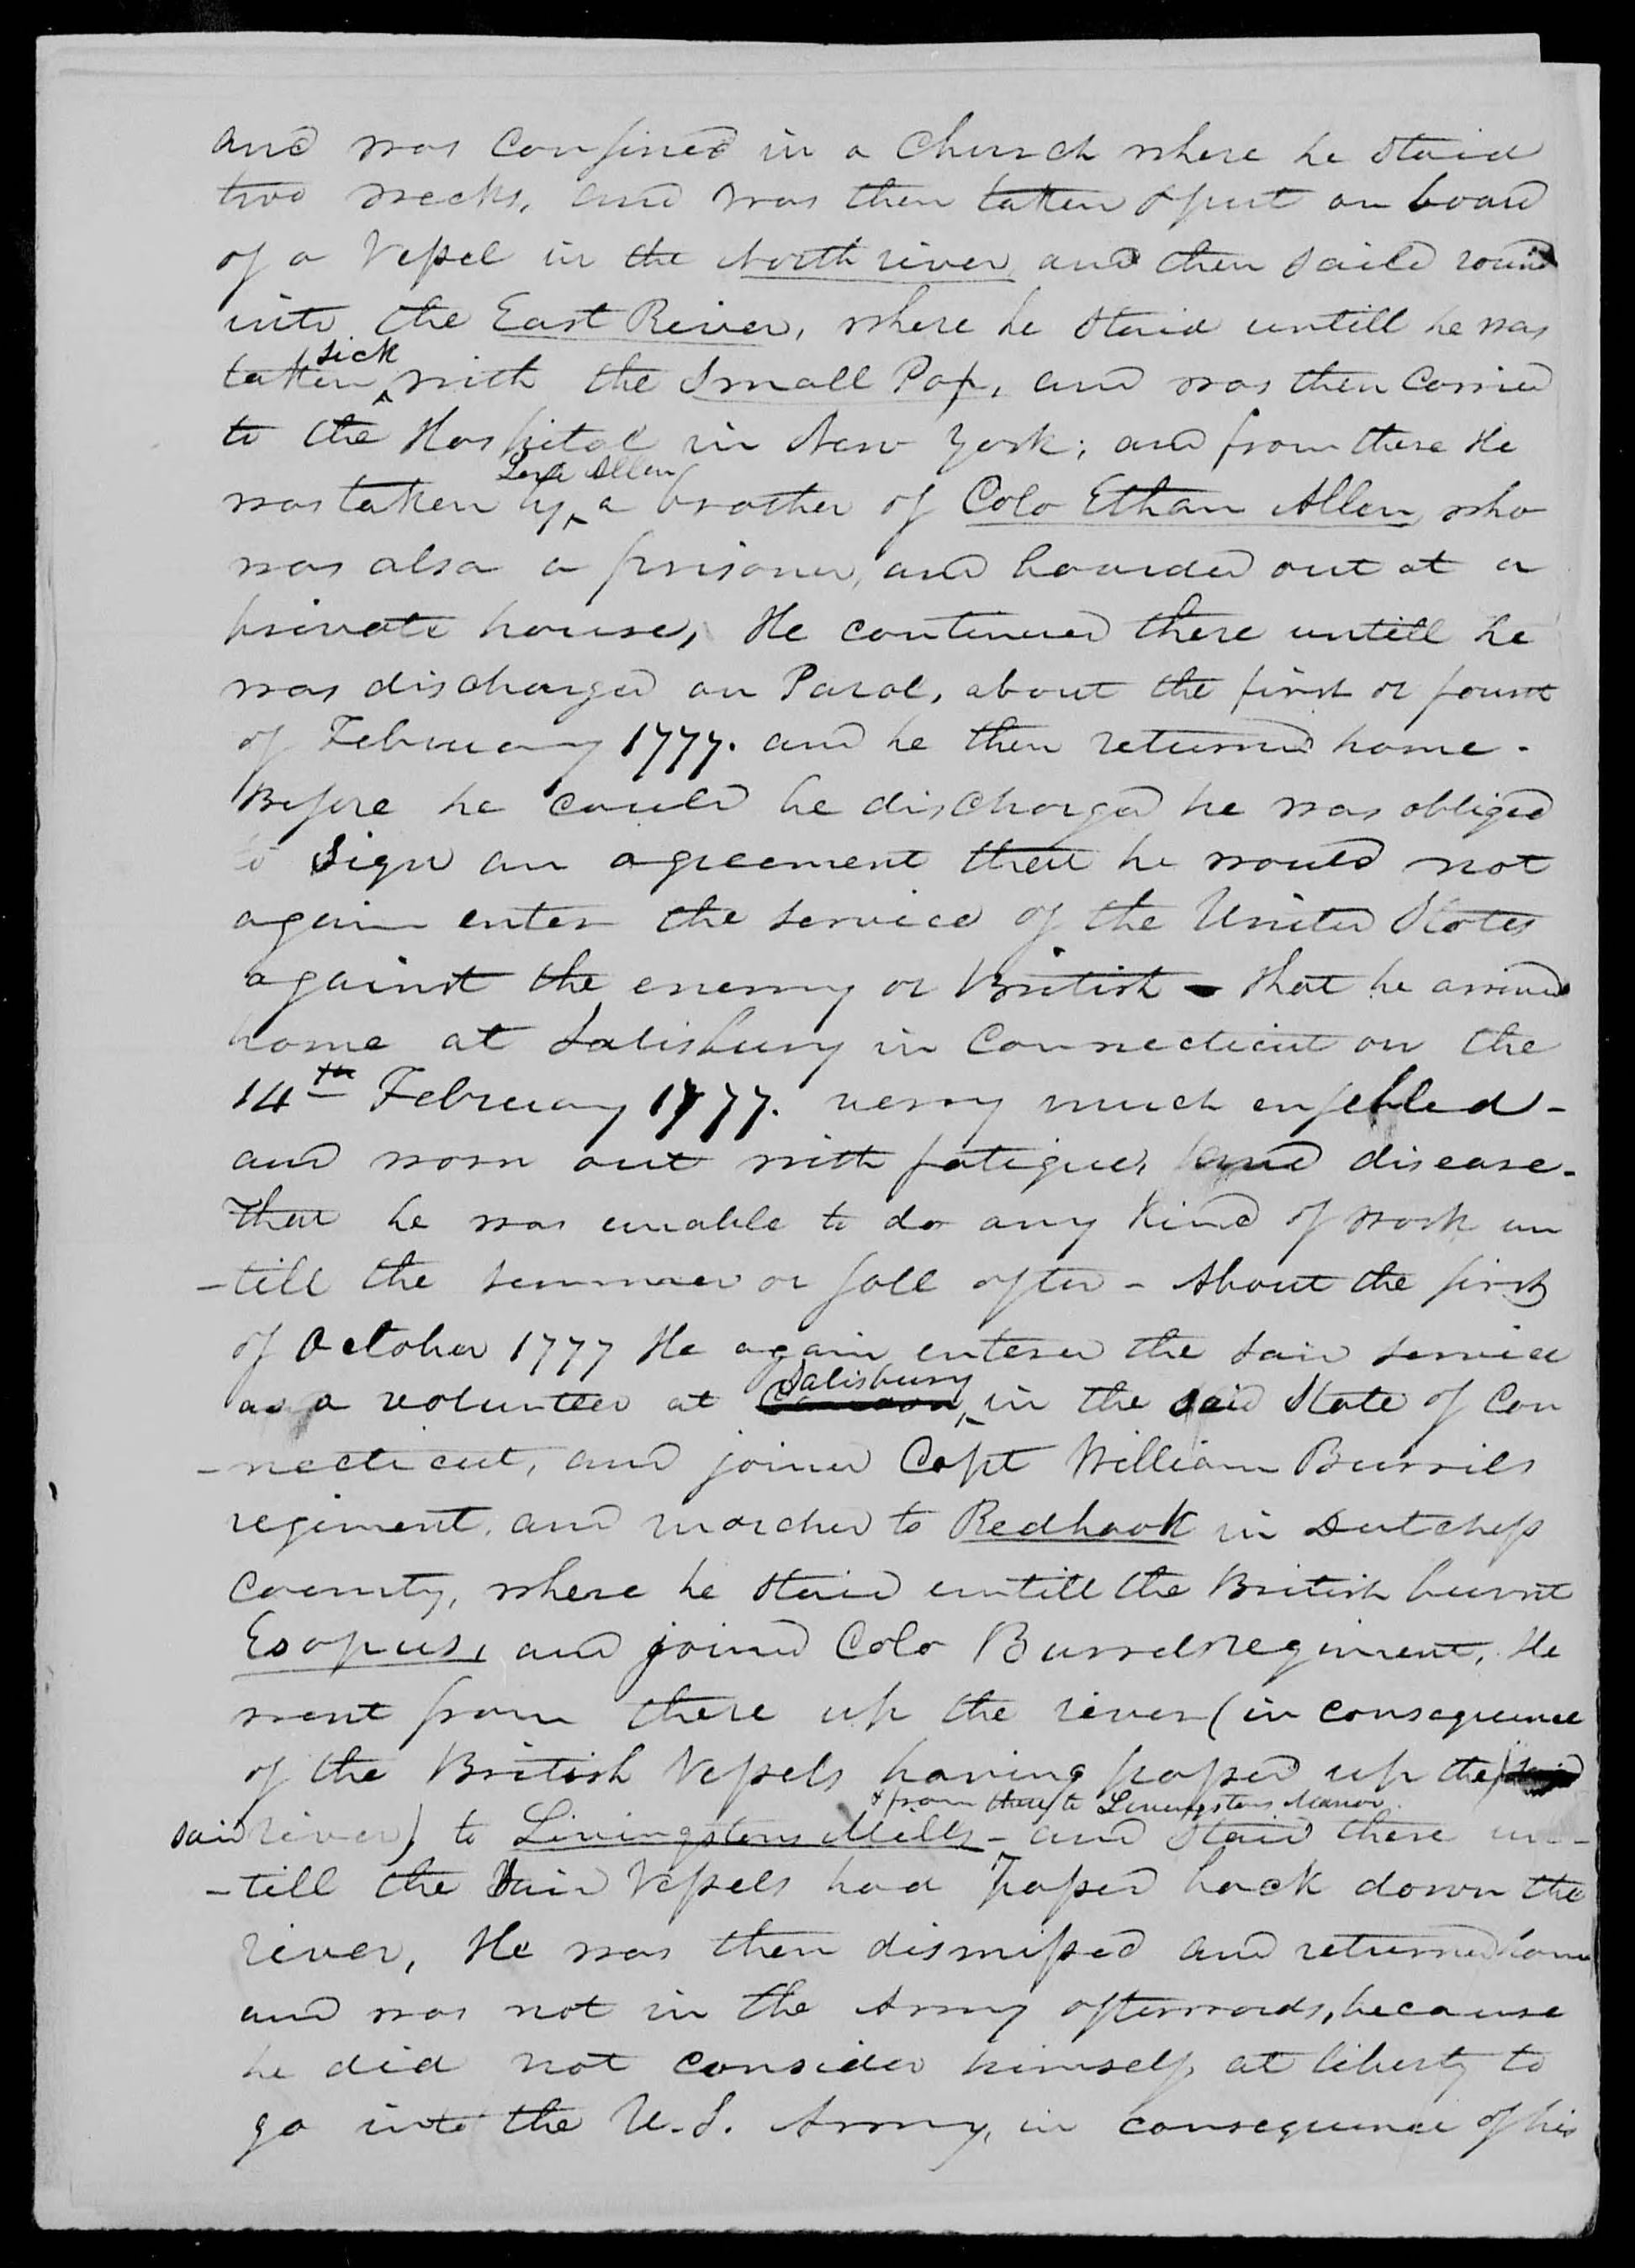 and was Confined in a Church where he staid
two weeks, and was then taken & put on board
of a Vessel in the North river and then saild round
into the East River, where he staid untill he was
sick
taken with the Small Pox, and was then Carried
to the Hospital in New York; and from there He
Levi Allen
was taken by a brother of Colo Ethan Allen who
was also a prisoner, and boarded out at a
private house, He continued there untill he
was discharged on Parol, about the first or fourth
of February 1777. and he then returned home -
Before he could be discharged he was obliged
to Sign an agreement that he would not
again enter the service of the United States
against the enemy or British - that he arrived
home at Salisbury in Connecticut on the
14th February 1777. verry much enfebled -
and worn out with fatigue, and disease -
that he was unable to do any kind of work un
-till the summer or fall after - About the first
of October 1777 He again entered the said service
Salisbury
as a volunteer at Canaan, in the said State of Con
-necticut, and joined Capt William Burrils
regiment, and marched to Redhook in Dutchess
County, where he staid untill the British burnt
Esopus, and joined Colo Burrels regiment, He
went from there up the river (in consequence
of the British Vessels having passed up the said
& from there to Livingstons Manor
said river) to Livingstons Mills - and staid there un-
-till the said Vessels had passed back down the
river, He was then dismissed and returned home
and was not in the Army afterwards, because
he did not consider himself at liberty to
go into the U.S. Army, in consequence of his